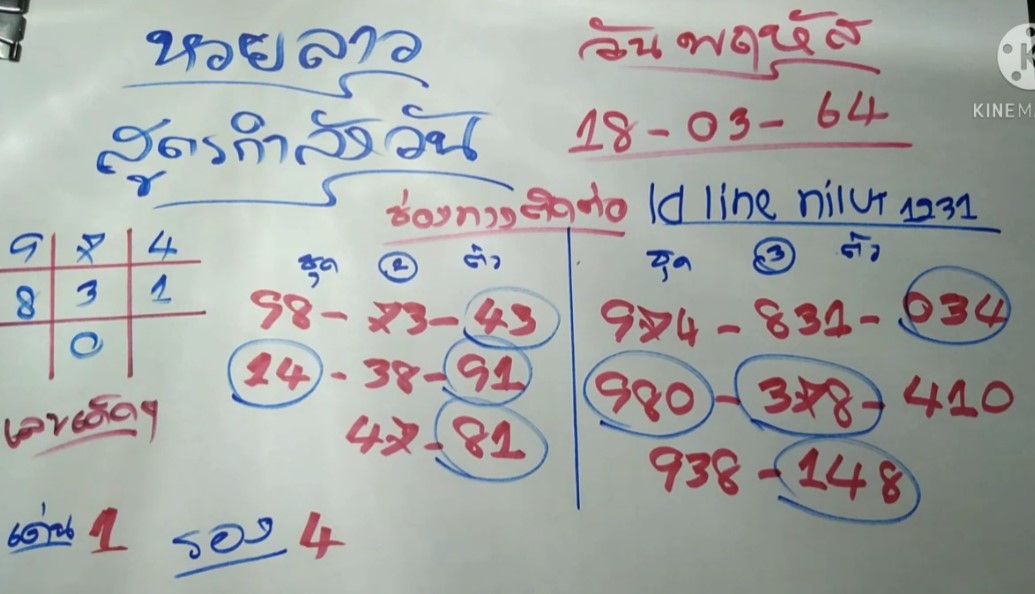 หวยลาว
วันพฤหัส
สูตรกำลังวัน
18-03-64
ช่องทางติดต่อ Id line nilut 1231
9 7 4
8 3 1
0
ชุด 2 ตัว
98-73-43
14-38-91
47-81
ชุด 3 ตัว
974-831-034
980-378-410
938-148
เลขเด็ดๆ
เด่น 1 รอง 4
KINEMA